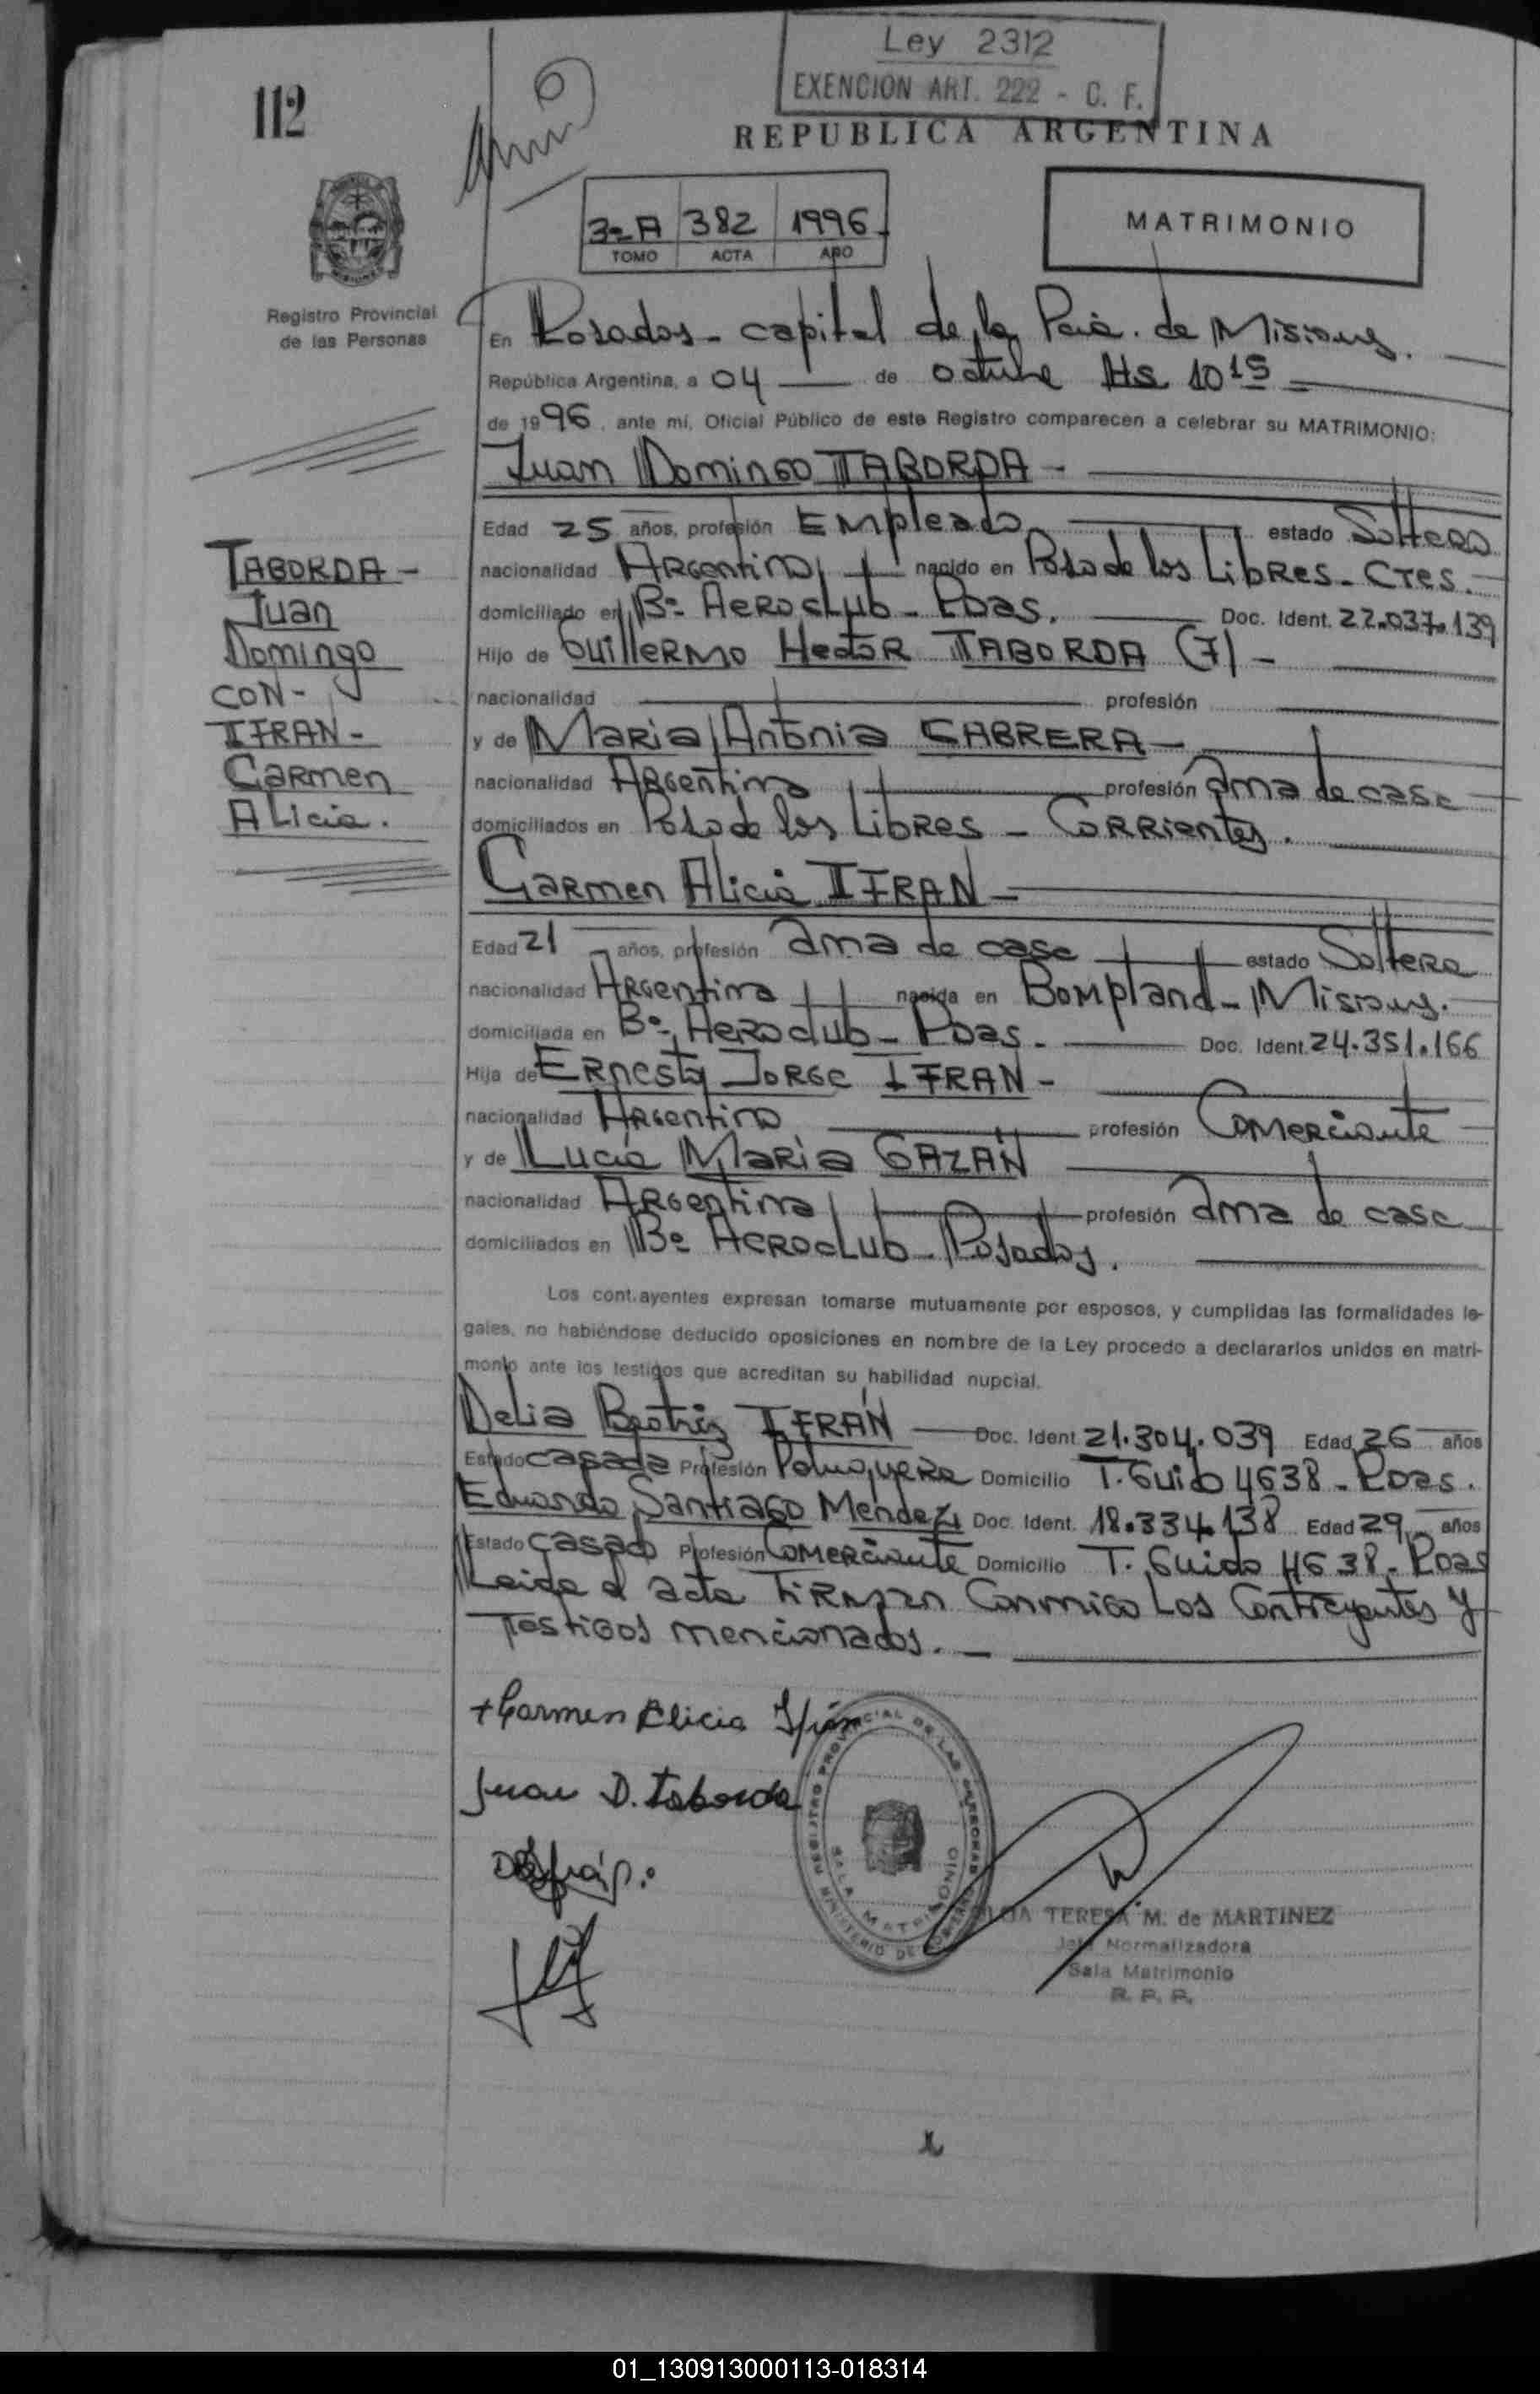 Ley 2312
EXENCION ART. 222 - C. F.
112
REPUBLICA ARGENTINA
3º A 382 1996
TOMO ACTA AÑO
MATRIMONIO
Registro Provincial
de las Personas
En Posadas - capital de la Pcia. de Misiones.
República Argentina, a 04 de octubre Hs 10 15
de 1996, ante mí, Oficial Público de este Registro comparecen a celebrar su MATRIMONIO:
Juan Domingo TABORDA -
Edad 25 años, profesión Empleado estado Soltero
nacionalidad Argentino nacido en Paso de los Libres - Ctes.
domiciliado en Bº Aeroclub - Pdas. Doc. Ident. 22.037.139
Hijo de Guillermo Hector TABORDA (F) -
nacionalidad profesión
y de Maria Antonia CABRERA -
nacionalidad Argentina profesión ama de casa
domiciliados en Paso de los Libres - Corrientes.
TABORDA -
Juan
Domingo
CON -
IFRAN -
Carmen
Alicia.
Carmen Alicia IFRAN -
Edad 21 años, profesión ama de casa estado Soltera
nacionalidad Argentina nacida en Bompland - Misiones.
domiciliada en Bº Aeroclub - Pdas. Doc. Ident. 24.351.166
Hija de Ernesto Jorge IFRAN -
nacionalidad Argentino profesión Comerciante
y de Lucia Maria GAZAÑ
nacionalidad Argentina profesión ama de casa
domiciliados en Bº Aeroclub - Posadas.
Los cont.ayentes expresan tomarse mutuamente por esposos, y cumplidas las formalidades le-
gales, no habiéndose deducido oposiciones en nombre de la Ley procedo a declararlos unidos en matri-
monio ante los testigos que acreditan su habilidad nupcial.
Delia Beatriz IFRAN Doc. Ident. 21.304.039 Edad 26 años
Estado casada Profesión Peluquera Domicilio T. Guido 4638 - Pdas.
Eduardo Santiago Mendez Doc. Ident. 18.334.138 Edad 29 años
Estado casado Profesión Comerciante Domicilio T. Guido 4638 - Pdas
Leida el acta firman conmigo Los Contrayentes y
Testigos mencionados.
+ Carmen Alicia Ifrán
Juan D. Taborda
REGISTRO PROVINCIAL DE LAS PERSONAS
SALA MATRIMONIO
MINISTERIO DE GOBIERNO
TERESA M. de MARTINEZ
Jefa Normalizadora
Sala Matrimonio
R. P. P.
01_130913000113-018314